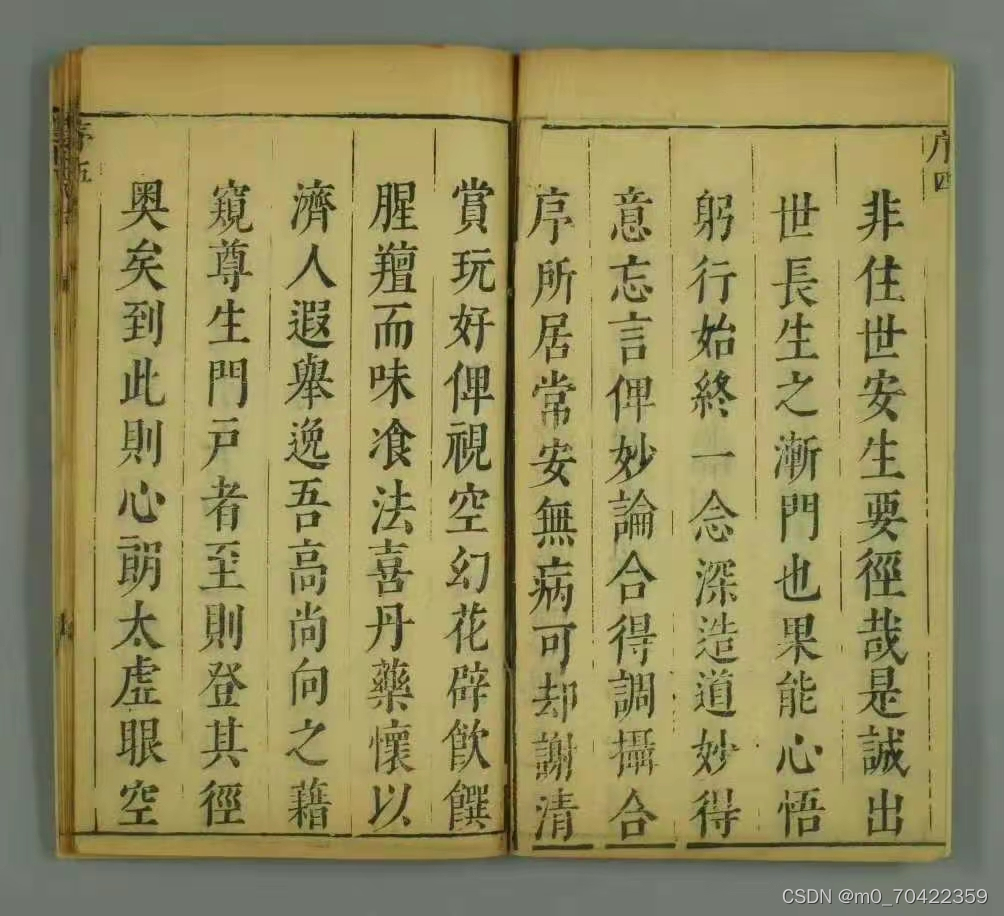 序四
非住世安生要徑哉是誠出
世長生之漸門也果能心悟
躬行始終一念深造道妙得
意忘言俾妙論合得調攝合
序所居常安無病可却謝清
賞玩好俾視空幻花辟飲饌
腥羶而味飡法喜丹藥懷以
濟人遐舉逸吾高尚向之藉
窺尊生門戸者至則登其徑
奥矣到此則心朗太虛眼空
序五
CSDN @m0_70422359